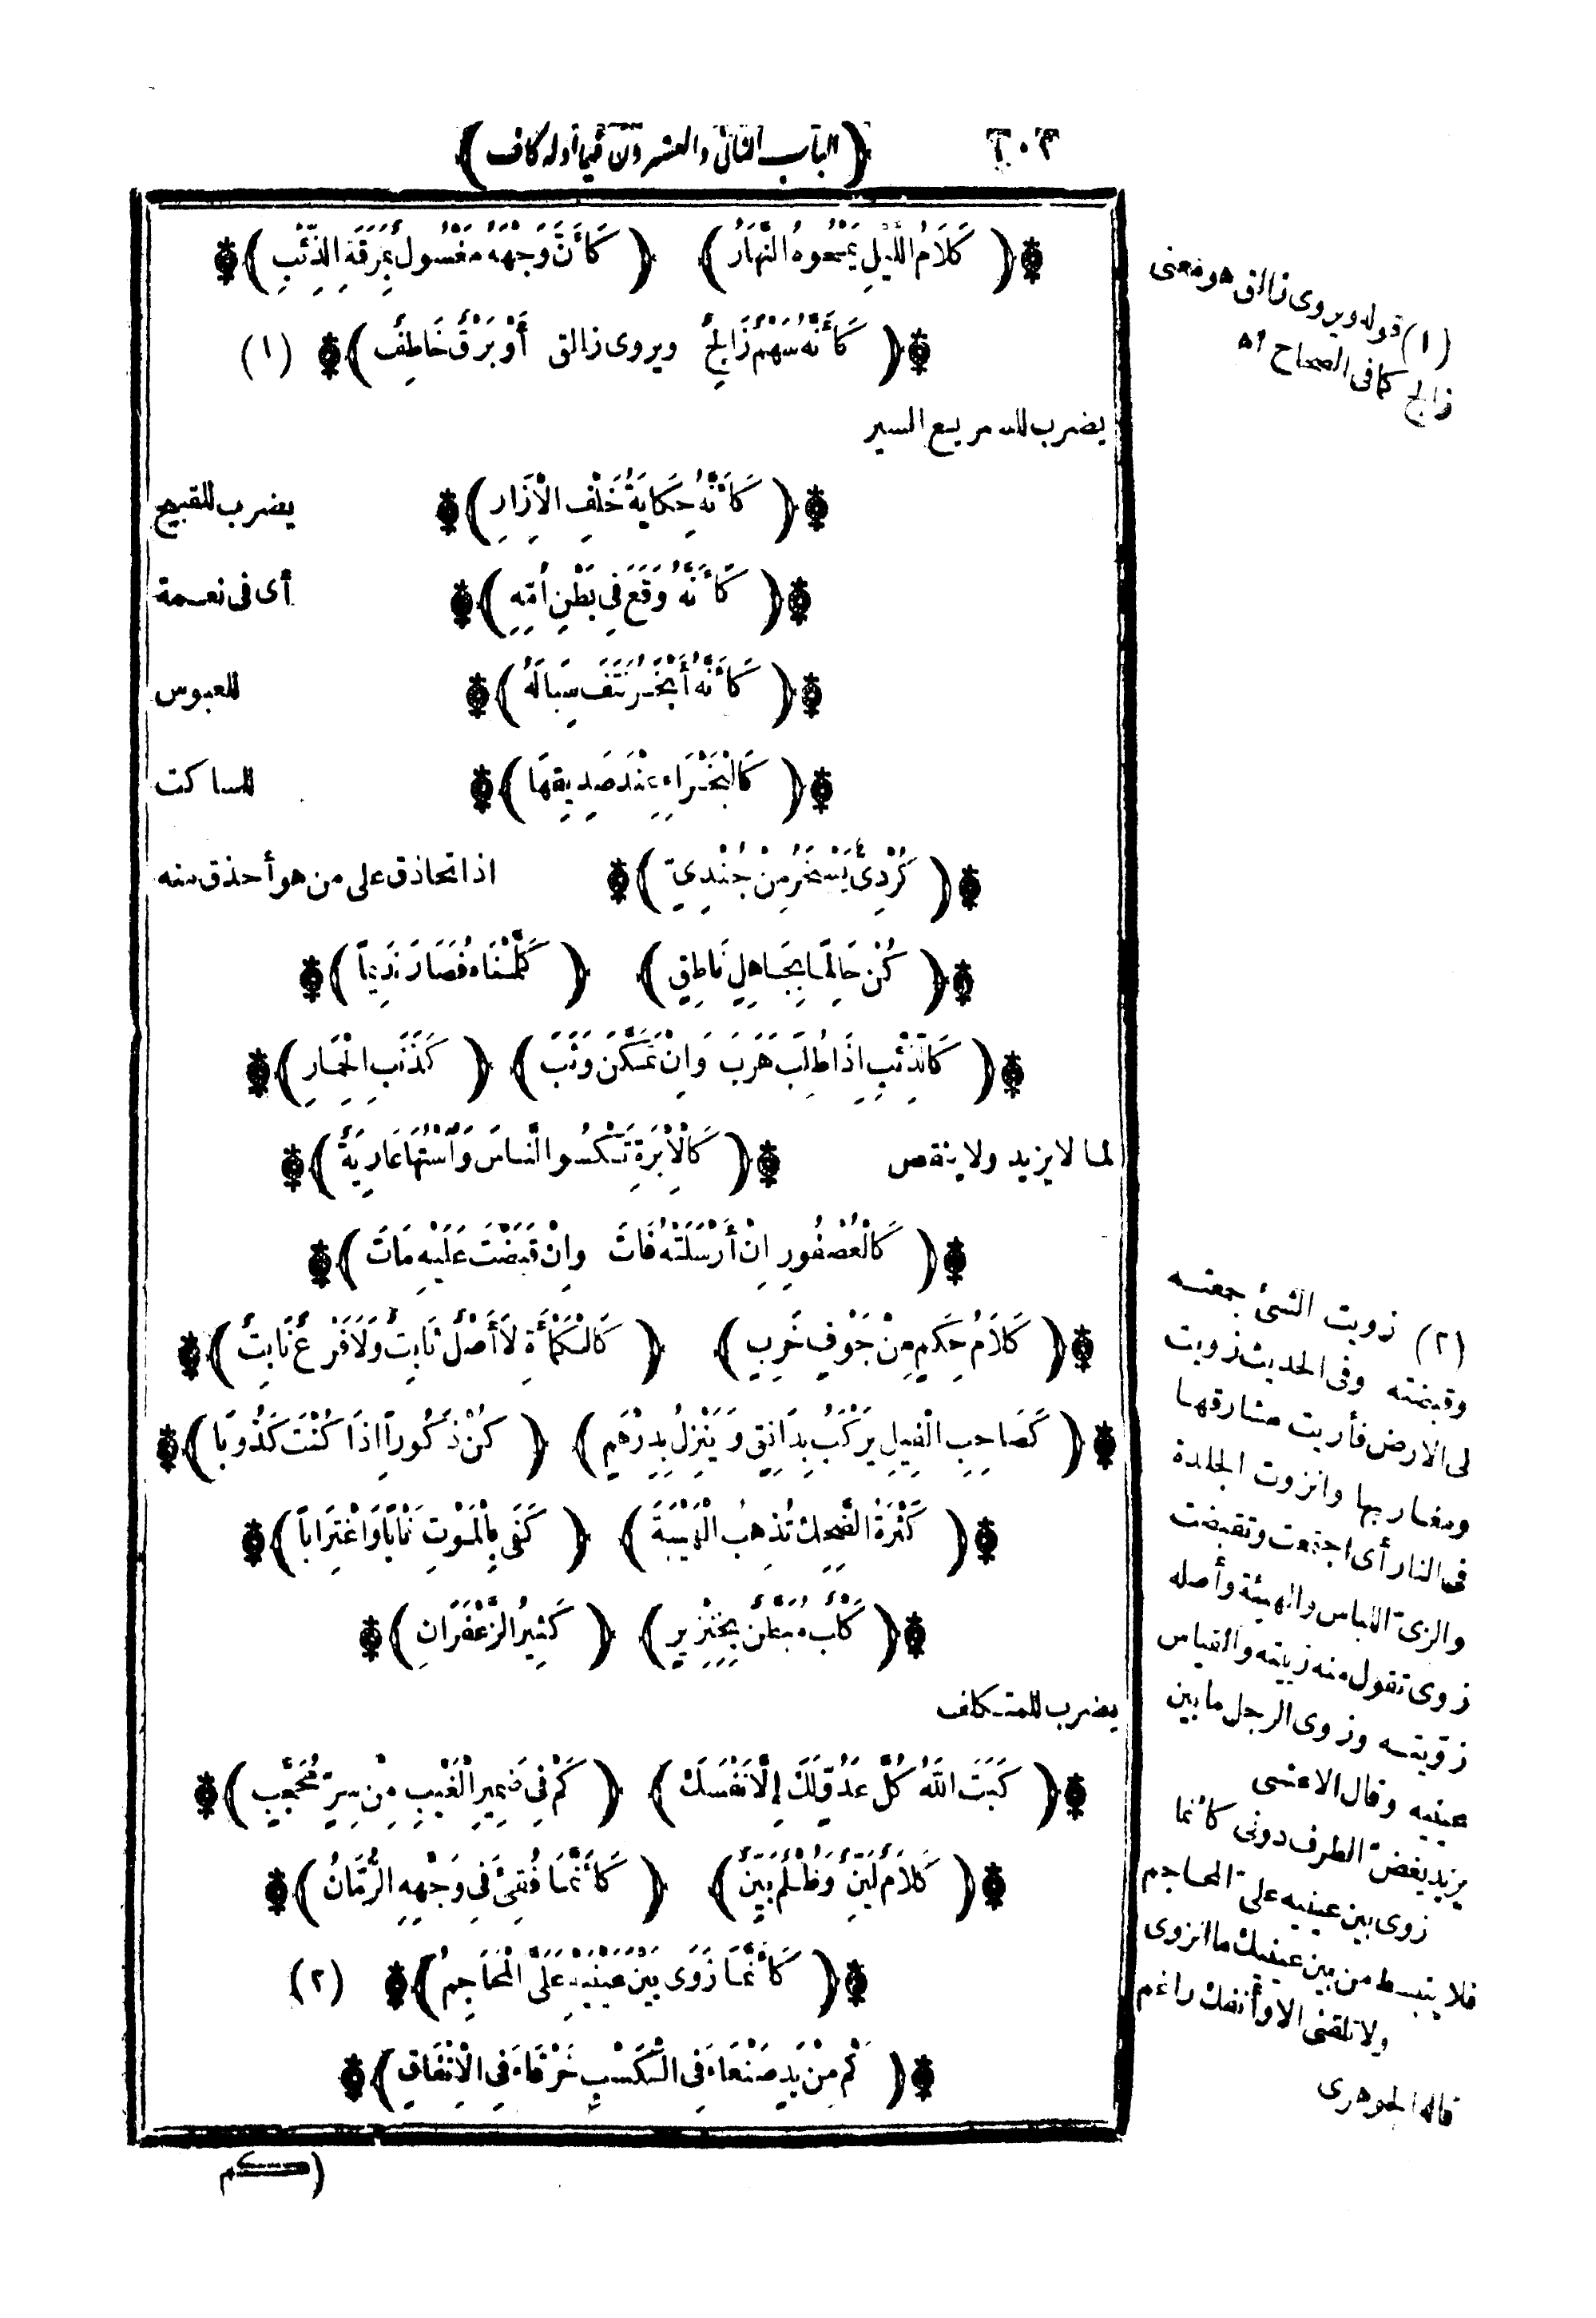 ٢٠٢ ﴿الباب الثاني والعشرون فيما أوله كاف﴾
﴿كَلَامُ اللَّيْلِ يَمْحُوهُ النَّهَارُ﴾ ﴿كَأَنَّ وَجْهَهُ مَغْسُولٌ بِمَرَقَةِ الذِّئْبِ﴾
﴿كَأَنَّهُ سَهْمٌ زَالِجٌ ويروى زالق أَوْ بَرْقٌ خَاطِفٌ﴾ (١)
يضرب للسريع السير
﴿كَأَنَّهُ حِكَايَةُ خَلْفِ الْإِزَارِ﴾ يضرب للقبيح
﴿كَأَنَّهُ وَقَعَ فِي بَطْنِ أُمِّهِ﴾ أى فى نعمة
﴿كَأَنَّهُ أَبْخَرُ نَتَفَ سِبَالَهُ﴾ للعبوس
﴿كَالْبَخْرَاءِ عِنْدَ صَدِيقِهَا﴾ للساكت
﴿كُرْدِيٌّ يَسْخَرُ مِنْ جُنْدِيٍّ﴾ اذا تحاذق على من هو أحذق منه
﴿كُنْ حَالِمًا بِجَاهِلٍ نَاطِقٍ﴾ ﴿كَلَّمْنَاهُ فَصَارَ نَدِيمًا﴾
﴿كَالذِّئْبِ إِذَا طُلِبَ هَرَبَ وَإِنْ تَمَكَّنَ وَثَبَ﴾ ﴿كَذَنَبِ الْحِمَارِ﴾
لما لا يزيد ولا ينقص ﴿كَالْإِبْرَةِ تَكْسُو النَّاسَ وَاسْتُهَا عَارِيَةٌ﴾
﴿كَالْعُصْفُورِ إِنْ أَرْسَلْتَهُ فَاتَ وإِنْ قَبَضْتَ عَلَيْهِ مَاتَ﴾
﴿كَلَامُ حِكَمٍ مِنْ جَوْفٍ خَرِبٍ﴾ ﴿كَالْكَمْأَةِ لَا أَصْلٌ ثَابِتٌ وَلَا فَرْعٌ نَابِتٌ﴾
﴿كَصَاحِبِ الْفِيلِ يَرْكَبُ بِدَانِقٍ وَيَنْزِلُ بِدِرْهَمٍ﴾ ﴿كُنْ ذَكُورًا إِذَا كُنْتَ كَذُوبًا﴾
﴿كَثْرَةُ الضَّحِكِ تُذْهِبُ الْهَيْبَةَ﴾ ﴿كَفَى بِالْمَوْتِ نَأْيًا وَاغْتِرَابًا﴾
﴿كَلْبٌ مُبَطَّنٌ بِخِنْزِيرٍ﴾ ﴿كَثِيرُ الزَّعْفَرَانِ﴾
يضرب للمتكلف
﴿كَبَتَ اللَّهُ كُلَّ عَدُوٍّ لَكَ إِلَّا نَفْسَكَ﴾ ﴿كَمْ فِي ضَمِيرِ الْغَيْبِ مِنْ سِرٍّ مُحَجَّبٍ﴾
﴿كَلَامٌ لَيِّنٌ وَظُلْمٌ بَيِّنٌ﴾ ﴿كَأَنَّمَا فُقِئَ فِي وَجْهِهِ الرُّمَّانُ﴾
﴿كَأَنَّمَا زَوَى بَيْنَ عَيْنَيْهِ عَلَيَّ الْمَحَاجِمُ﴾ (٢)
﴿كَمْ مِنْ يَدٍ صَنْعَاءَ فِي الْكَسْبِ خَرْقَاءَ فِي الْإِنْفَاقِ﴾
(كم
(١) قوله ويروى زالق هو معنى
زالج كما فى الصحاح اه
(٢) زويت الشئ جمعته
وقبضته وفى الحديث زويت
لى الارض فأريت مشارقها
ومغاربها وانزوت الجلدة
فى النار أى اجتمعت وتقبضت
والزىّ اللباس والهيئة وأصله
زوى تقول منه زييته والقياس
زوّيته وزوى الرجل ما بين
عينيه وقال الاعشى
يزيد يغض الطرف دونى كأنما
زوى بين عينيه علىّ المحاجم
فلا ينبسط من بين عينيك ما انزوى
ولا تلقنى الا وأنفك راغم
قاله الجوهرى